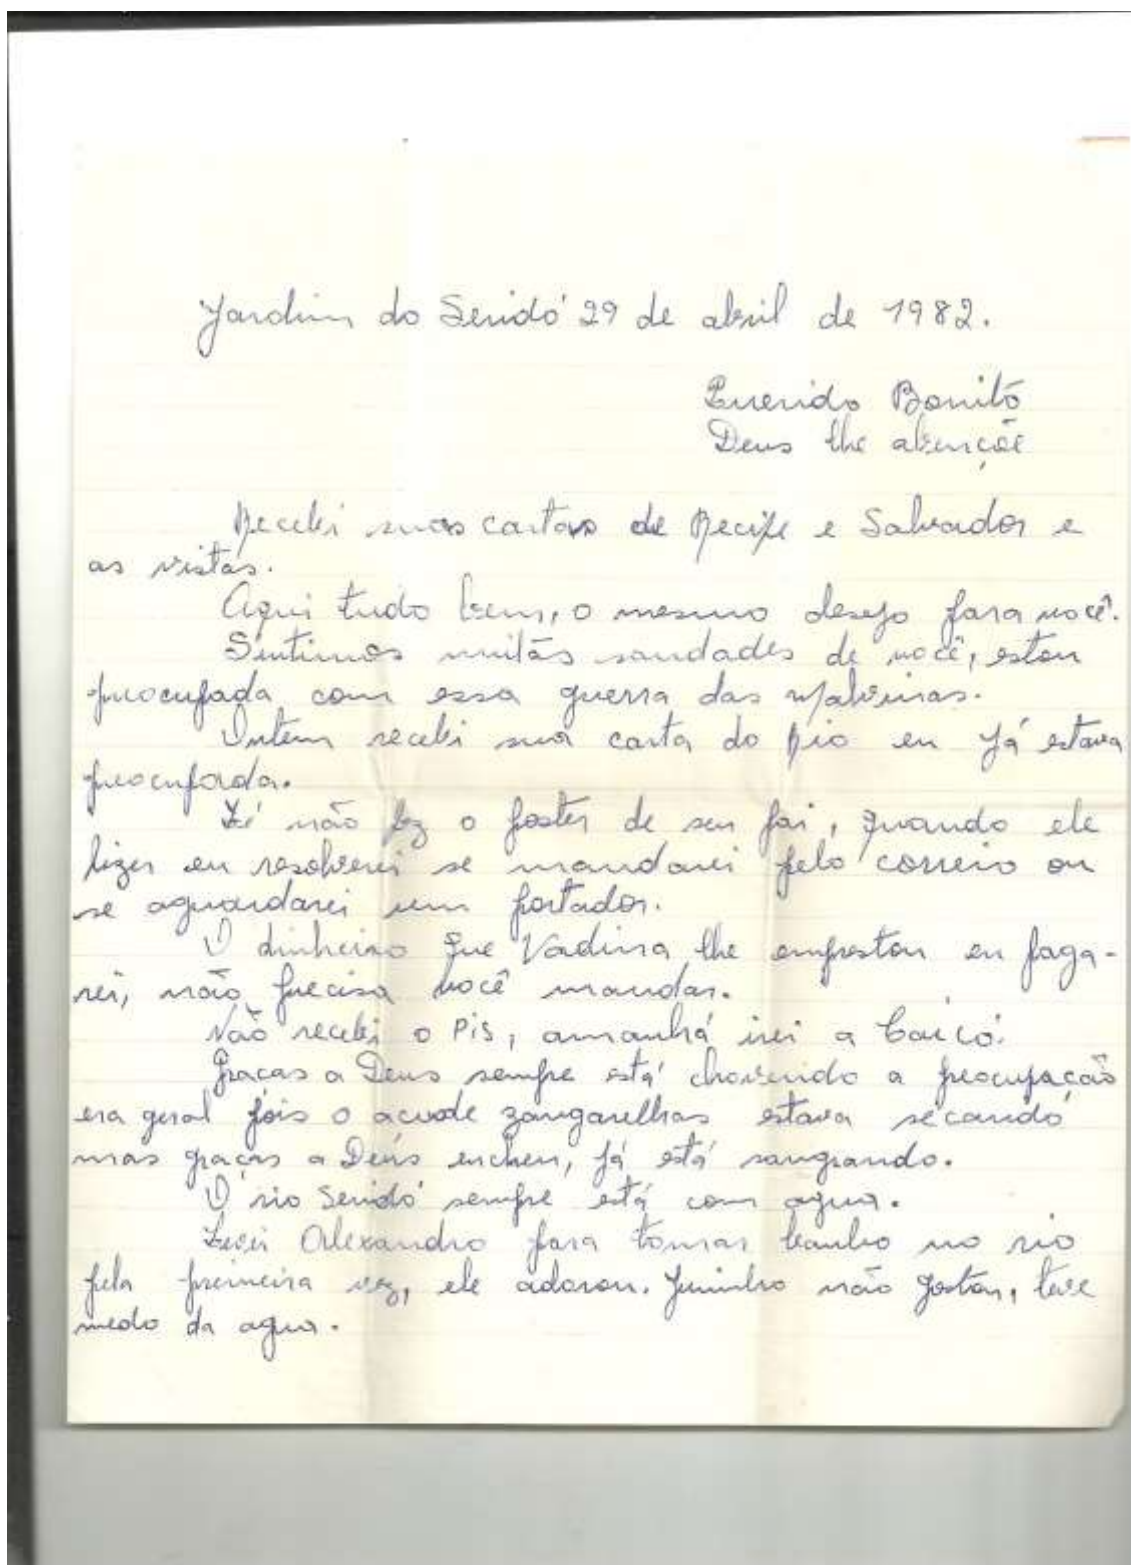 Jardim do Seridó 29 de abril de 1982.
Querido Bonitô
Deus lhe abençõe
Recebi suas cartas de Recife e Salvador e
as vistas.
Aqui tudo bem, o mesmo desejo para você.
Sentimos muitas saudades de você, estou
preocupada com essa guerra das Malvinas.
Ontem recebi sua carta do Rio eu já estava
preocupada.
Zé não fez o poster de seu pai, quando ele
fizer eu resolverei se mandarei pelo correio ou
se aguardarei um portador.
O dinheiro que Vadina lhe emprestou eu paga-
rei, não precisa você mandar.
Não recebi o PIS, amanhã irei a Caicó.
Graças a Deus sempre está chovendo a preocupação
era geral pois o acude zangarelhas estava secando
mas graças a Deus encheu, já está sangrando.
O rio Seridó sempre está com agua.
Levei Alexandro para tomar banho no rio
pela primeira vez, ele adorou. Juninho não gostou, teve
medo da agua.